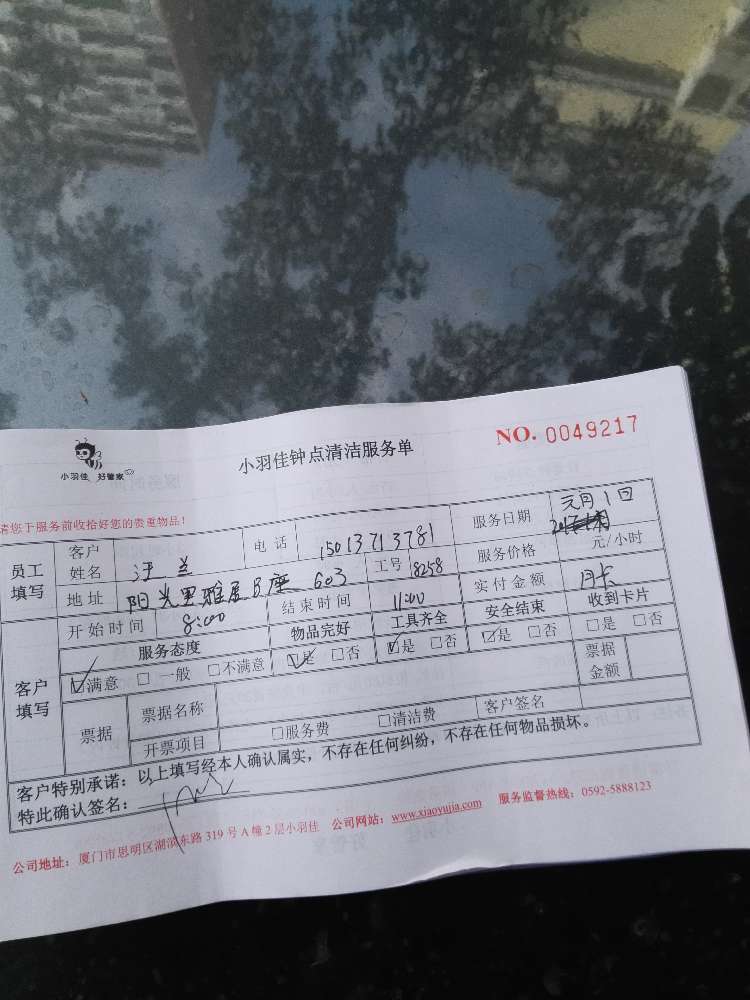 小羽佳 好管家
小羽佳钟点清洁服务单
NO. 0049217
请您于服务前收拾好您的贵重物品！
员工填写 客户姓名 汪兰 电话 15013713781 服务日期 元月1日
地址 阳光里雅居B座 603 工号 8258 服务价格 元/小时
开始时间 8:00 结束时间 11:00 实付金额 月卡
客户填写 服务态度 物品完好 工具齐全 安全结束 收到卡片
☑满意 □一般 □不满意 ☑是 □否 ☑是 □否 ☑是 □否 □是 □否
票据 票据名称 票据金额
开票项目 □服务费 □清洁费 客户签名
客户特别承诺：以上填写经本人确认属实，不存在任何纠纷，不存在任何物品损坏。
特此确认签名：
公司地址：厦门市思明区湖滨东路 319 号 A 幢 2 层小羽佳 公司网站：www.xiaoyujia.com 服务监督热线：0592-5888123